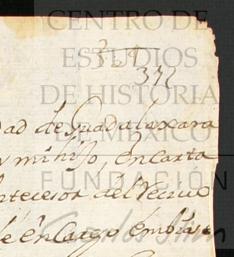 CENTRO DE
ESTUDIOS
DE HISTORIA
DE MÉXICO
FUNDACIÓN
Carlos Slim
371
372
dad de Guadalaxara
mi hijo, en carta
antecesor del
de encargo embi